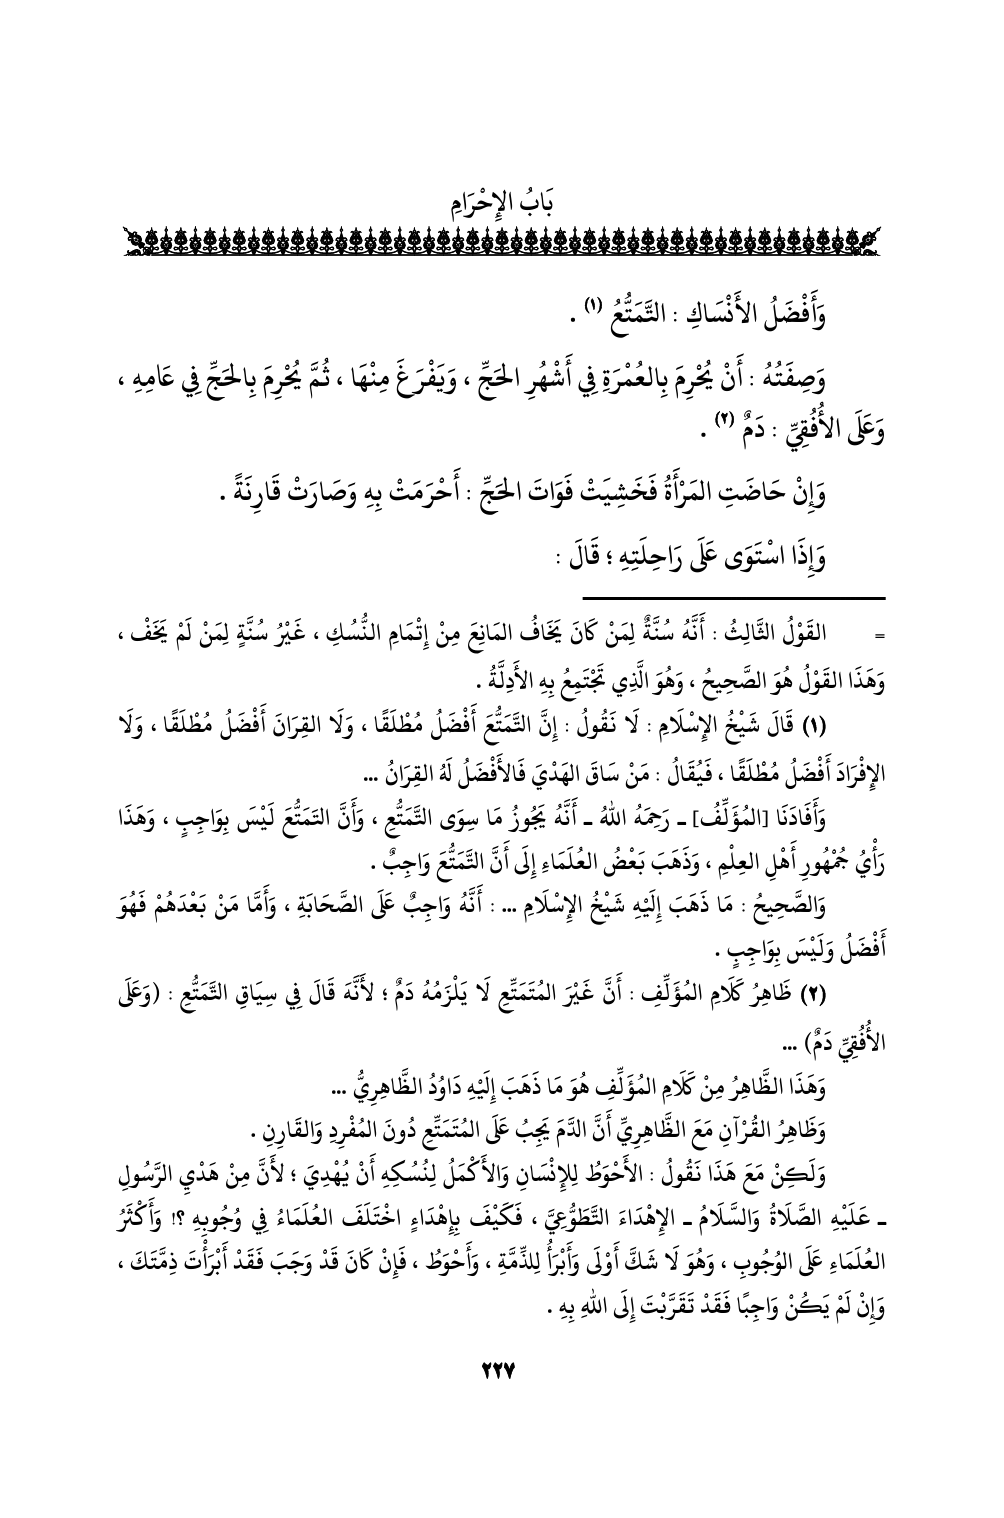 بَابُ الإِحْرَامِ
وَأَفْضَلُ الأَنْسَاكِ : التَّمَتُّعُ (١) .
وَصِفَتُهُ : أَنْ يُحْرِمَ بِالعُمْرَةِ فِي أَشْهُرِ الحَجِّ ، وَيَفْرَغَ مِنْهَا ، ثُمَّ يُحْرِمَ بِالحَجِّ فِي عَامِهِ ،
وَعَلَى الأُفُقِيِّ : دَمٌ (٢) .
وَإِنْ حَاضَتِ المَرْأَةُ فَخَشِيَتْ فَوَاتَ الحَجِّ : أَحْرَمَتْ بِهِ وَصَارَتْ قَارِنَةً .
وَإِذَا اسْتَوَى عَلَى رَاحِلَتِهِ ؛ قَالَ :
= القَوْلُ الثَّالِثُ : أَنَّهُ سُنَّةٌ لِمَنْ كَانَ يَخَافُ المَانِعَ مِنْ إِتْمَامِ النُّسُكِ ، غَيْرُ سُنَّةٍ لِمَنْ لَمْ يَخَفْ ،
وَهَذَا القَوْلُ هُوَ الصَّحِيحُ ، وَهُوَ الَّذِي تَجْتَمِعُ بِهِ الأَدِلَّةُ .
(١) قَالَ شَيْخُ الإِسْلَامِ : لَا نَقُولُ : إِنَّ التَّمَتُّعَ أَفْضَلُ مُطْلَقًا ، وَلَا القِرَانَ أَفْضَلُ مُطْلَقًا ، وَلَا
الإِفْرَادَ أَفْضَلُ مُطْلَقًا ، فَيُقَالُ : مَنْ سَاقَ الهَدْيَ فَالأَفْضَلُ لَهُ القِرَانُ ...
وَأَفَادَنَا [المُؤَلِّفُ] ـ رَحِمَهُ اللهُ ـ أَنَّهُ يَجُوزُ مَا سِوَى التَّمَتُّعِ ، وَأَنَّ التَمَتُّعَ لَيْسَ بِوَاجِبٍ ، وَهَذَا
رَأْيُ جُمْهُورِ أَهْلِ العِلْمِ ، وَذَهَبَ بَعْضُ العُلَمَاءِ إِلَى أَنَّ التَّمَتُّعَ وَاجِبٌ .
وَالصَّحِيحُ : مَا ذَهَبَ إِلَيْهِ شَيْخُ الإِسْلَامِ ... : أَنَّهُ وَاجِبٌ عَلَى الصَّحَابَةِ ، وَأَمَّا مَنْ بَعْدَهُمْ فَهُوَ
أَفْضَلُ وَلَيْسَ بِوَاجِبٍ .
(٢) ظَاهِرُ كَلَامِ المُؤَلِّفِ : أَنَّ غَيْرَ المُتَمَتِّعِ لَا يَلْزَمُهُ دَمٌ ؛ لأَنَّهَ قَالَ فِي سِيَاقِ التَّمَتُّعِ : (وَعَلَى
الأُفُقِيِّ دَمٌ) ...
وَهَذَا الظَّاهِرُ مِنْ كَلَامِ المُؤَلِّفِ هُوَ مَا ذَهَبَ إِلَيْهِ دَاوُدُ الظَّاهِرِيُّ ...
وَظَاهِرُ القُرْآنِ مَعَ الظَّاهِرِيِّ أَنَّ الدَّمَ يَجِبُ عَلَى المُتَمَتِّعِ دُونَ المُفْرِدِ وَالقَارِنِ .
وَلَكِنْ مَعَ هَذَا نَقُولُ : الأَحْوَطُ لِلإِنْسَانِ وَالأَكْمَلُ لِنُسُكِهِ أَنْ يُهْدِيَ ؛ لأَنَّ مِنْ هَدْيِ الرَّسُولِ
ـ عَلَيْهِ الصَّلَاةُ وَالسَّلَامُ ـ الإِهْدَاءَ التَّطَوُّعِيَّ ، فَكَيْفَ بِإِهْدَاءٍ اخْتَلَفَ العُلَمَاءُ فِي وُجُوبِهِ ؟! وَأَكْثَرُ
العُلَمَاءِ عَلَى الوُجُوبِ ، وَهُوَ لَا شَكَّ أَوْلَى وَأَبْرَأُ لِلذِّمَّةِ ، وَأَحْوَطُ ، فَإِنْ كَانَ قَدْ وَجَبَ فَقَدْ أَبْرَأْتَ ذِمَّتَكَ ،
وَإِنْ لَمْ يَكُنْ وَاجِبًا فَقَدْ تَقَرَّبْتَ إِلَى اللهِ بِهِ .
٢٢٧